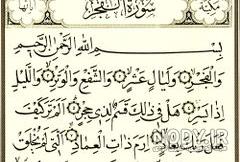 سورة الفجر
مكية
آياتها
بسم الله الرحمن الرحيم
والفجر ۝ وليال عشر ۝ والشفع والوتر ۝ والليل
إذا يسر ۝ هل في ذلك قسم لذي حجر ۝ ألم تر كيف
فعل ربك بعاد ۝ إرم ذات العماد ۝ التي لم يخلق